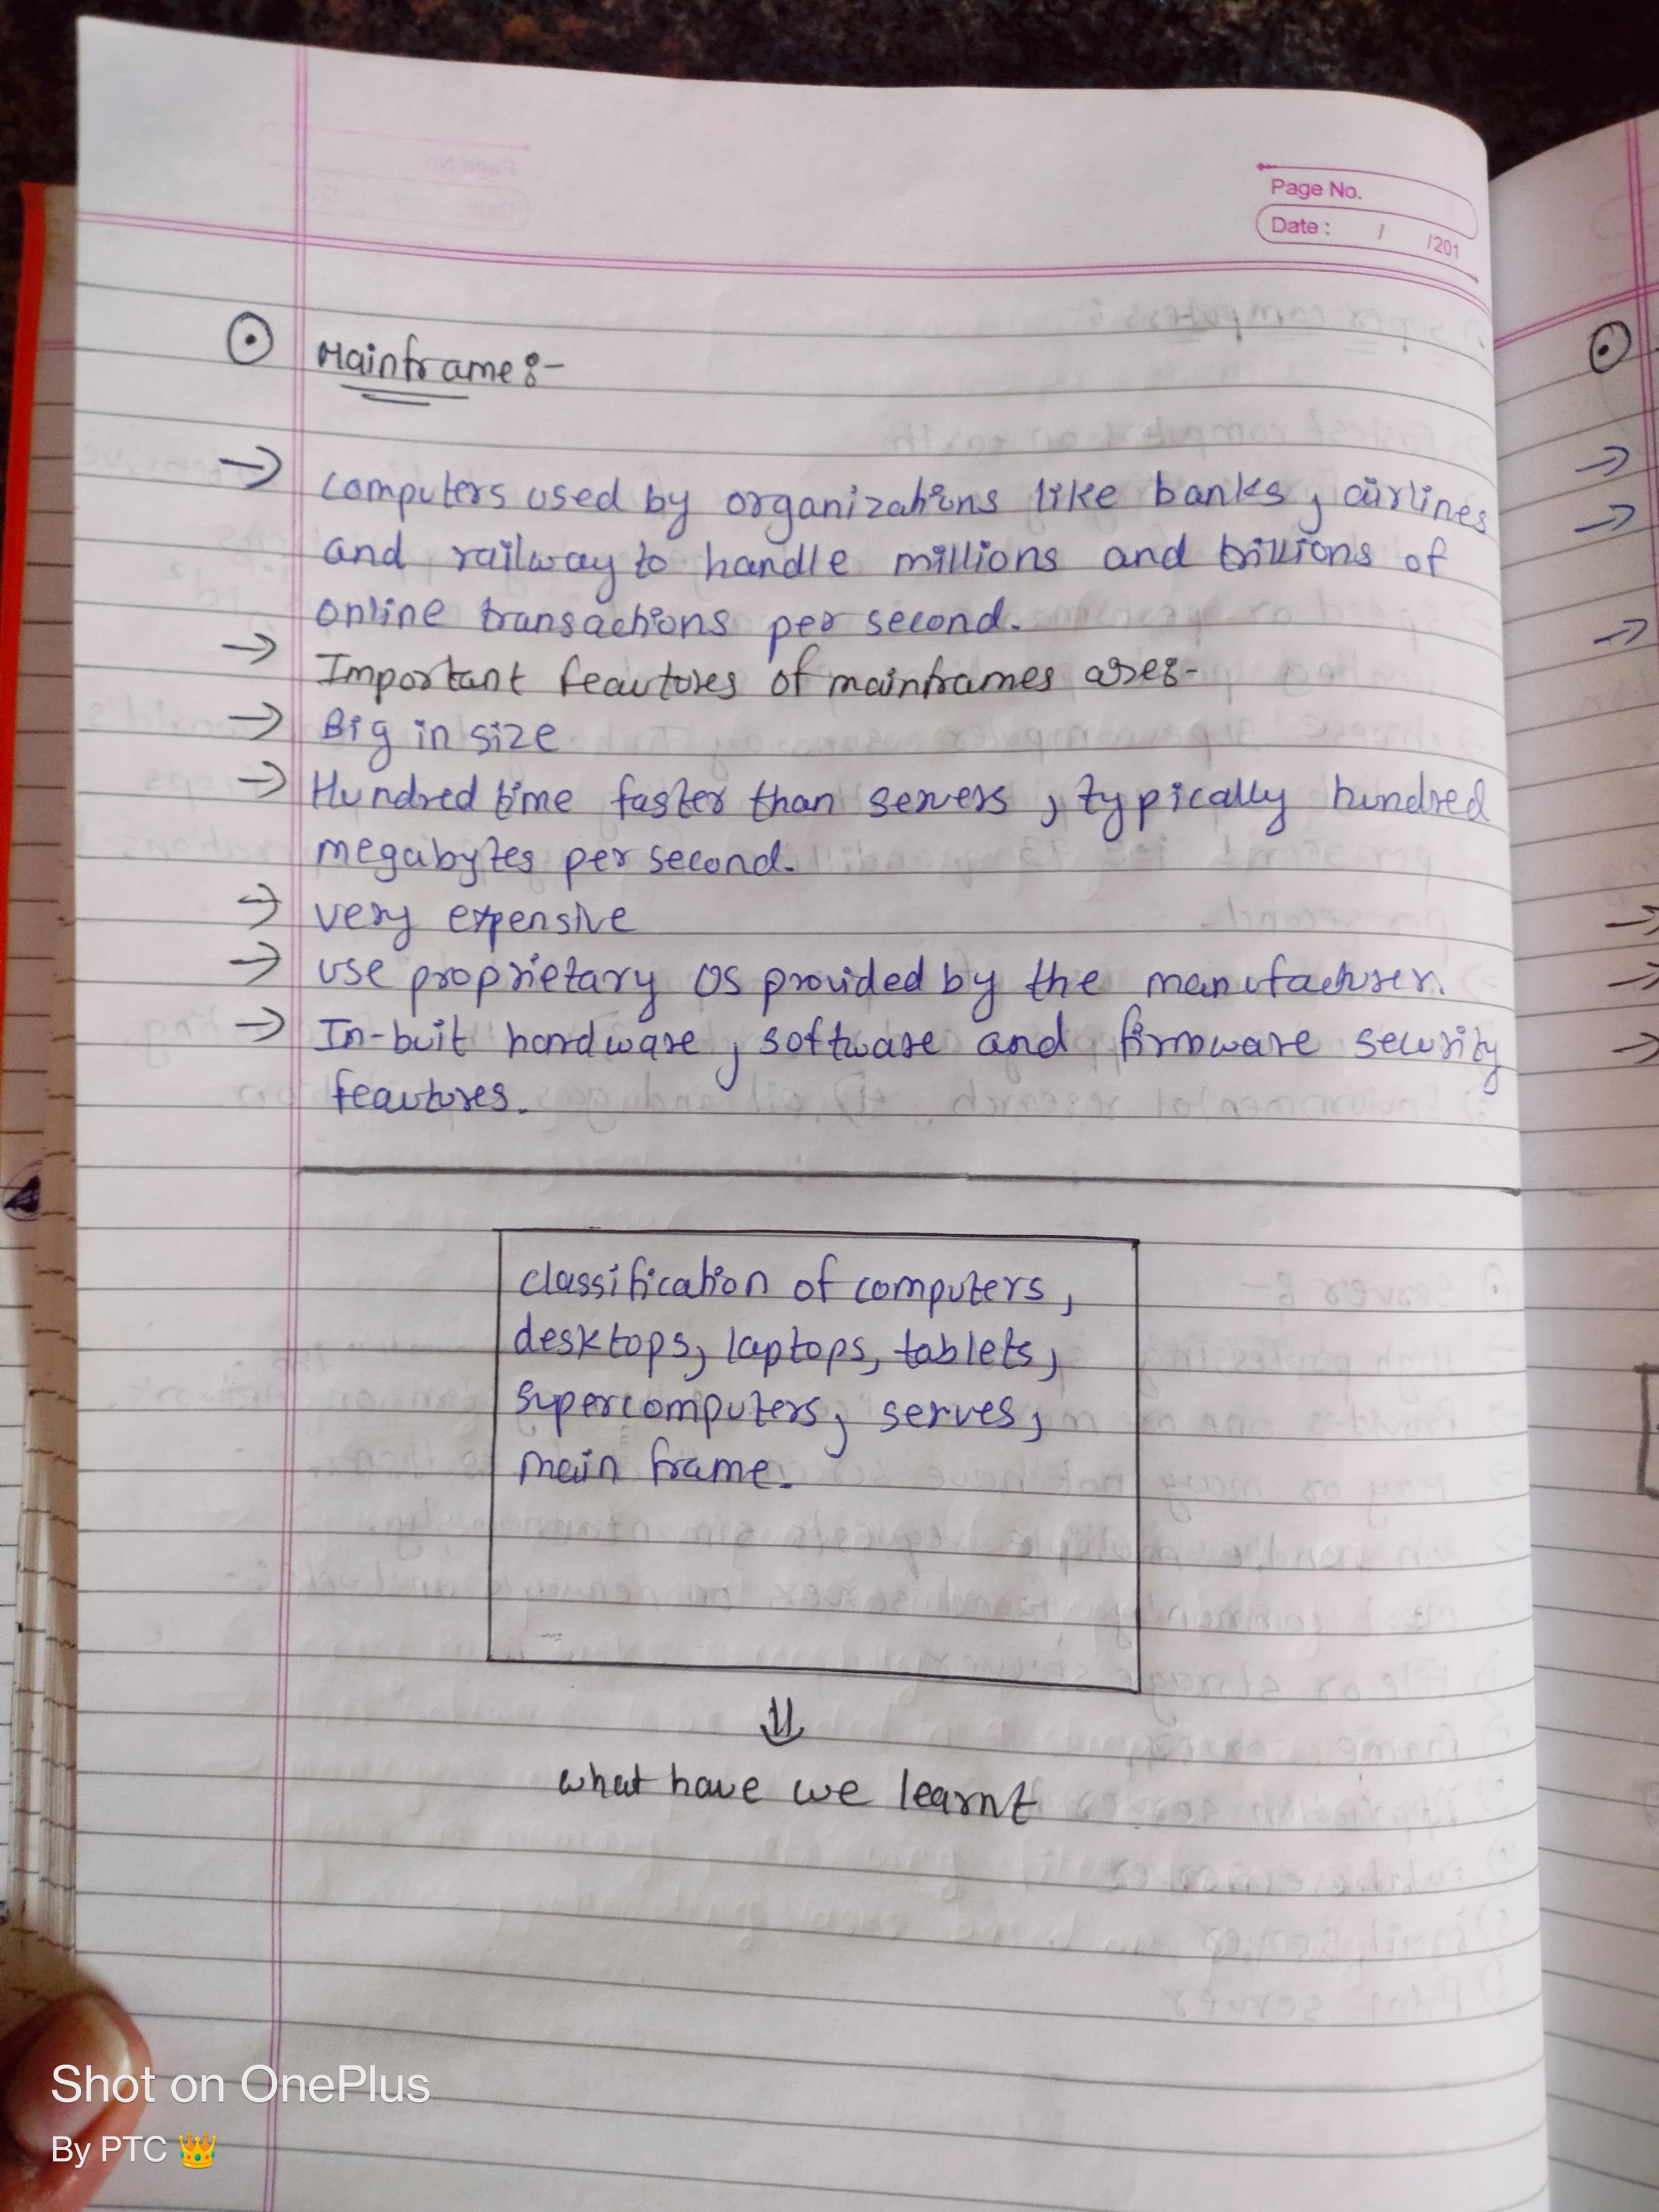 Page No.
Date : / /201
Mainframe :-
→ computers used by organizations like banks, airlines
and railway to handle millions and trillions of
online transactions per second.
→ Important feautures of mainframes are :-
→ Big in size
→ Hundred time faster than servers, typically hundred
megabytes per second.
→ very expensive
→ use proprietary OS provided by the manufacturer.
→ In-buit hardware, software and firmware security
feautures.
classification of computers,
desktops, laptops, tablets,
supercomputers, serves,
main frame.
⇓
what have we learnt
Shot on OnePlus
By PTC 👑